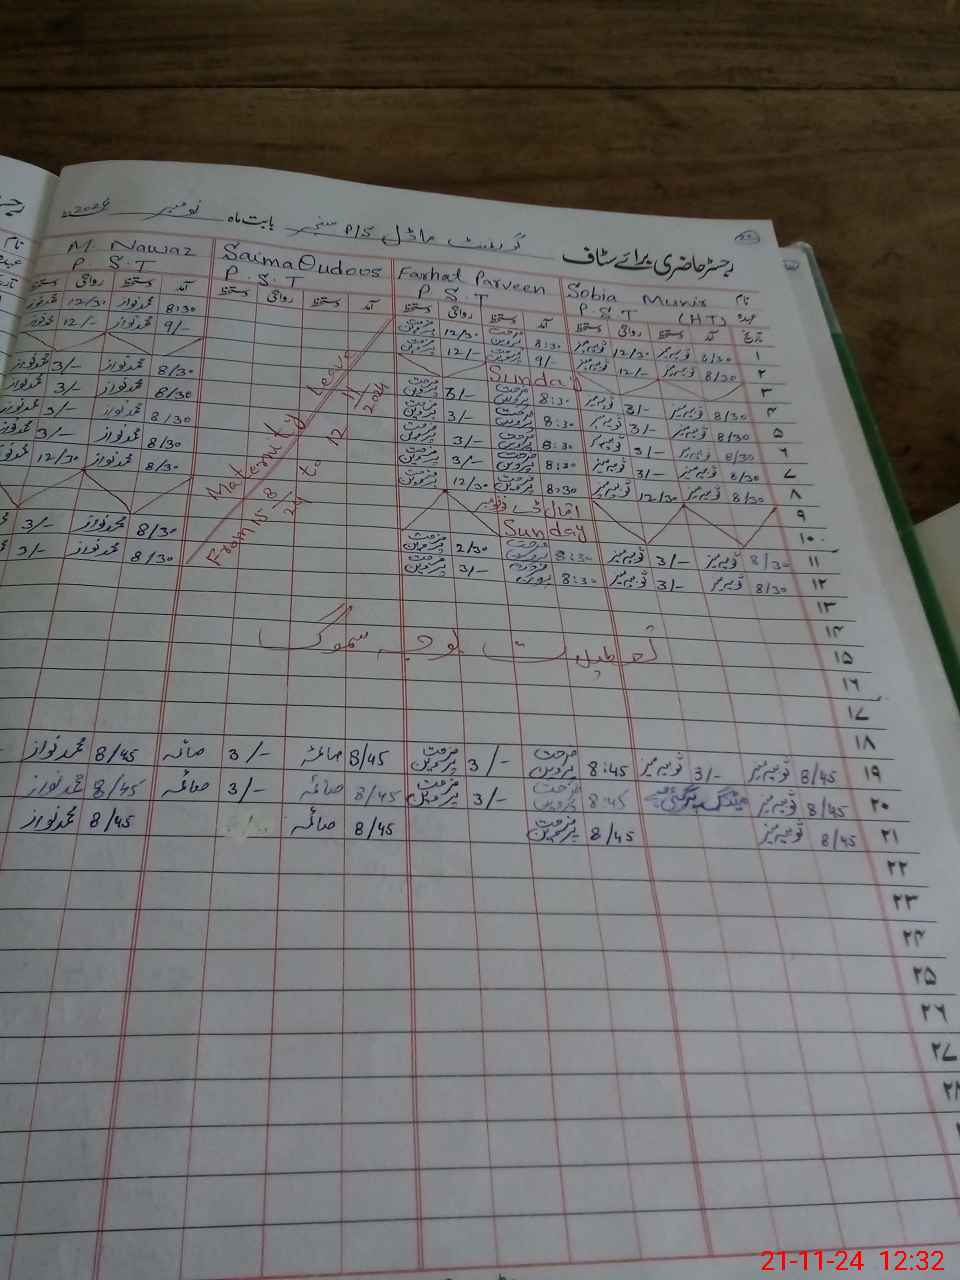 رجسٹر حاضری برائے سٹاف گورنمنٹ ماڈل P/S بابت ماہ نومبر 2024
نام Sobia Munir Farhat Parveen Saima Qudoos M. Nawaz
عہدہ P.S.T (HT) P.S.T P.S.T P.S.T
تاریخ آمد دستخط روانگی دستخط آمد دستخط روانگی دستخط آمد دستخط روانگی دستخط آمد دستخط روانگی دستخط
۱ 8/30 ثوبیہ منیر 12/30 ثوبیہ منیر 8:30 فرحت پروین 12/30 فرحت پروین 8:30 محمد نواز 12/30 محمد نواز
۲ 8/30 ثوبیہ منیر 12/- ثوبیہ منیر 9/- فرحت پروین 12/- فرحت پروین 9/- محمد نواز 12/- محمد نواز
۳ Sunday
۴ 8/30 ثوبیہ منیر 3/- ثوبیہ منیر 8:30 فرحت پروین 3/- فرحت پروین 8/30 محمد نواز 3/- محمد نواز
۵ 8/30 ثوبیہ منیر 3/- ثوبیہ منیر 8:30 فرحت پروین 3/- فرحت پروین 8/30 محمد نواز 3/- محمد نواز
۶ 8/30 ثوبیہ منیر 3/- ثوبیہ منیر 8:30 فرحت پروین 3/- فرحت پروین 8/30 محمد نواز 3/- محمد نواز
۷ 8/30 ثوبیہ منیر 3/- ثوبیہ منیر 8:30 فرحت پروین 3/- فرحت پروین 8/30 محمد نواز 3/- محمد نواز
۸ 8/30 ثوبیہ منیر 12/30 ثوبیہ منیر 8:30 فرحت پروین 12/30 فرحت پروین 8/30 محمد نواز 12/30 محمد نواز
۹ اقبال ڈے 9 نومبر
۱۰ Sunday
۱۱ 8/30 ثوبیہ منیر 3/- ثوبیہ منیر 8:30 فرحت پروین 2/30 فرحت پروین 8/30 محمد نواز 3/-
۱۲ 8/30 ثوبیہ منیر 3/- ثوبیہ منیر 8:30 فرحت پروین 3/- فرحت پروین 8/30 محمد نواز 3/-
Maternity Leave
From 15/8/24 to 12/11/2024
۱۳
۱۴
تعطیلات بوجہ سموگ
۱۵
۱۶
۱۷
۱۸
۱۹ 8/45 ثوبیہ منیر 3/- ثوبیہ منیر 8:45 فرحت پروین 3/- فرحت پروین 8/45 صائمہ 3/- صائمہ 8/45 محمد نواز
۲۰ 8/45 ثوبیہ منیر میٹنگ 8:45 فرحت پروین 3/- فرحت پروین 8/45 صائمہ 3/- صائمہ 8/45 محمد نواز
۲۱ 8/45 ثوبیہ منیر 8/45 فرحت پروین 8/45 صائمہ 8/45 محمد نواز
۲۲
۲۳
۲۴
۲۵
۲۶
۲۷
۲۸
21-11-24 12:32